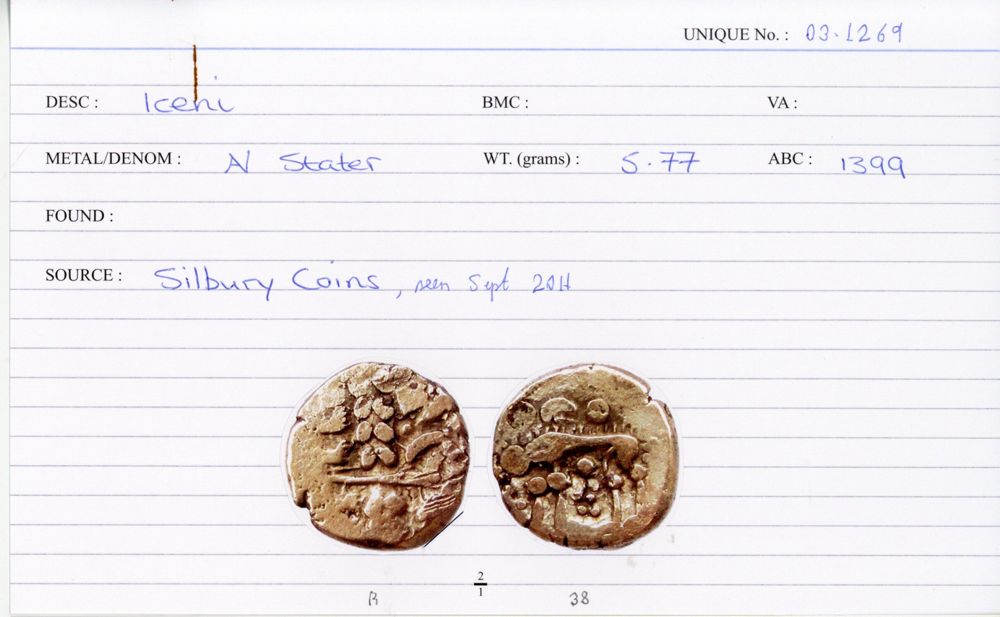 UNIQUE No. : 03.1269
DESC : Iceni BMC : VA :
METAL/DENOM : N Stater WT. (grams) : 5.77 ABC : 1399
FOUND :
SOURCE : Silbury Coins, seen Sept 2011
2
1
B 38